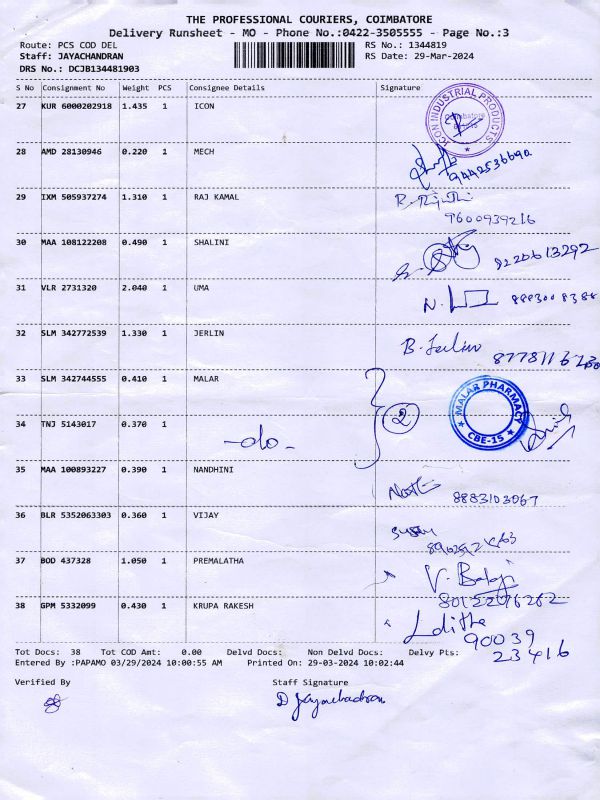 THE PROFESSIONAL COURIERS, COIMBATORE
Delivery Runsheet - MO - Phone No.:0422-3505555 - Page No.:3
Route: PCS COD DEL RS No.: 1344819
Staff: JAYACHANDRAN RS Date: 29-Mar-2024
DRS No.: DCJB134481903
S No Consignment No Weight PCS Consignee Details Signature
27 KUR 6000202918 1.435 1 ICON
ICON INDUSTRIAL PRODUCTS
Coimbatore
28 AMD 28130946 0.220 1 MECH
9442536690
29 IXM 505937274 1.310 1 RAJ KAMAL
9600939216
30 MAA 108122208 0.490 1 SHALINI
8220613292
31 VLR 2731320 2.040 1 UMA
32 SLM 342772539 1.330 1 JERLIN
B. Jerlin
33 SLM 342744555 0.410 1 MALAR
2
MALAR PHARMACY
CBE-15
34 TNJ 5143017 0.370 1
-do-
35 MAA 100893227 0.390 1 NANDHINI
8883103067
36 BLR 5352063303 0.360 1 VIJAY
37 BOD 437328 1.050 1 PREMALATHA
V. Balaji
38 GPM 5332099 0.430 1 KRUPA RAKESH
Lditha
90039
23416
Tot Docs: 38 Tot COD Amt: 0.00 Delvd Docs: Non Delvd Docs: Delvy Pts:
Entered By :PAPAMO 03/29/2024 10:00:55 AM Printed On: 29-03-2024 10:02:44
Verified By Staff Signature
D Jayachadran